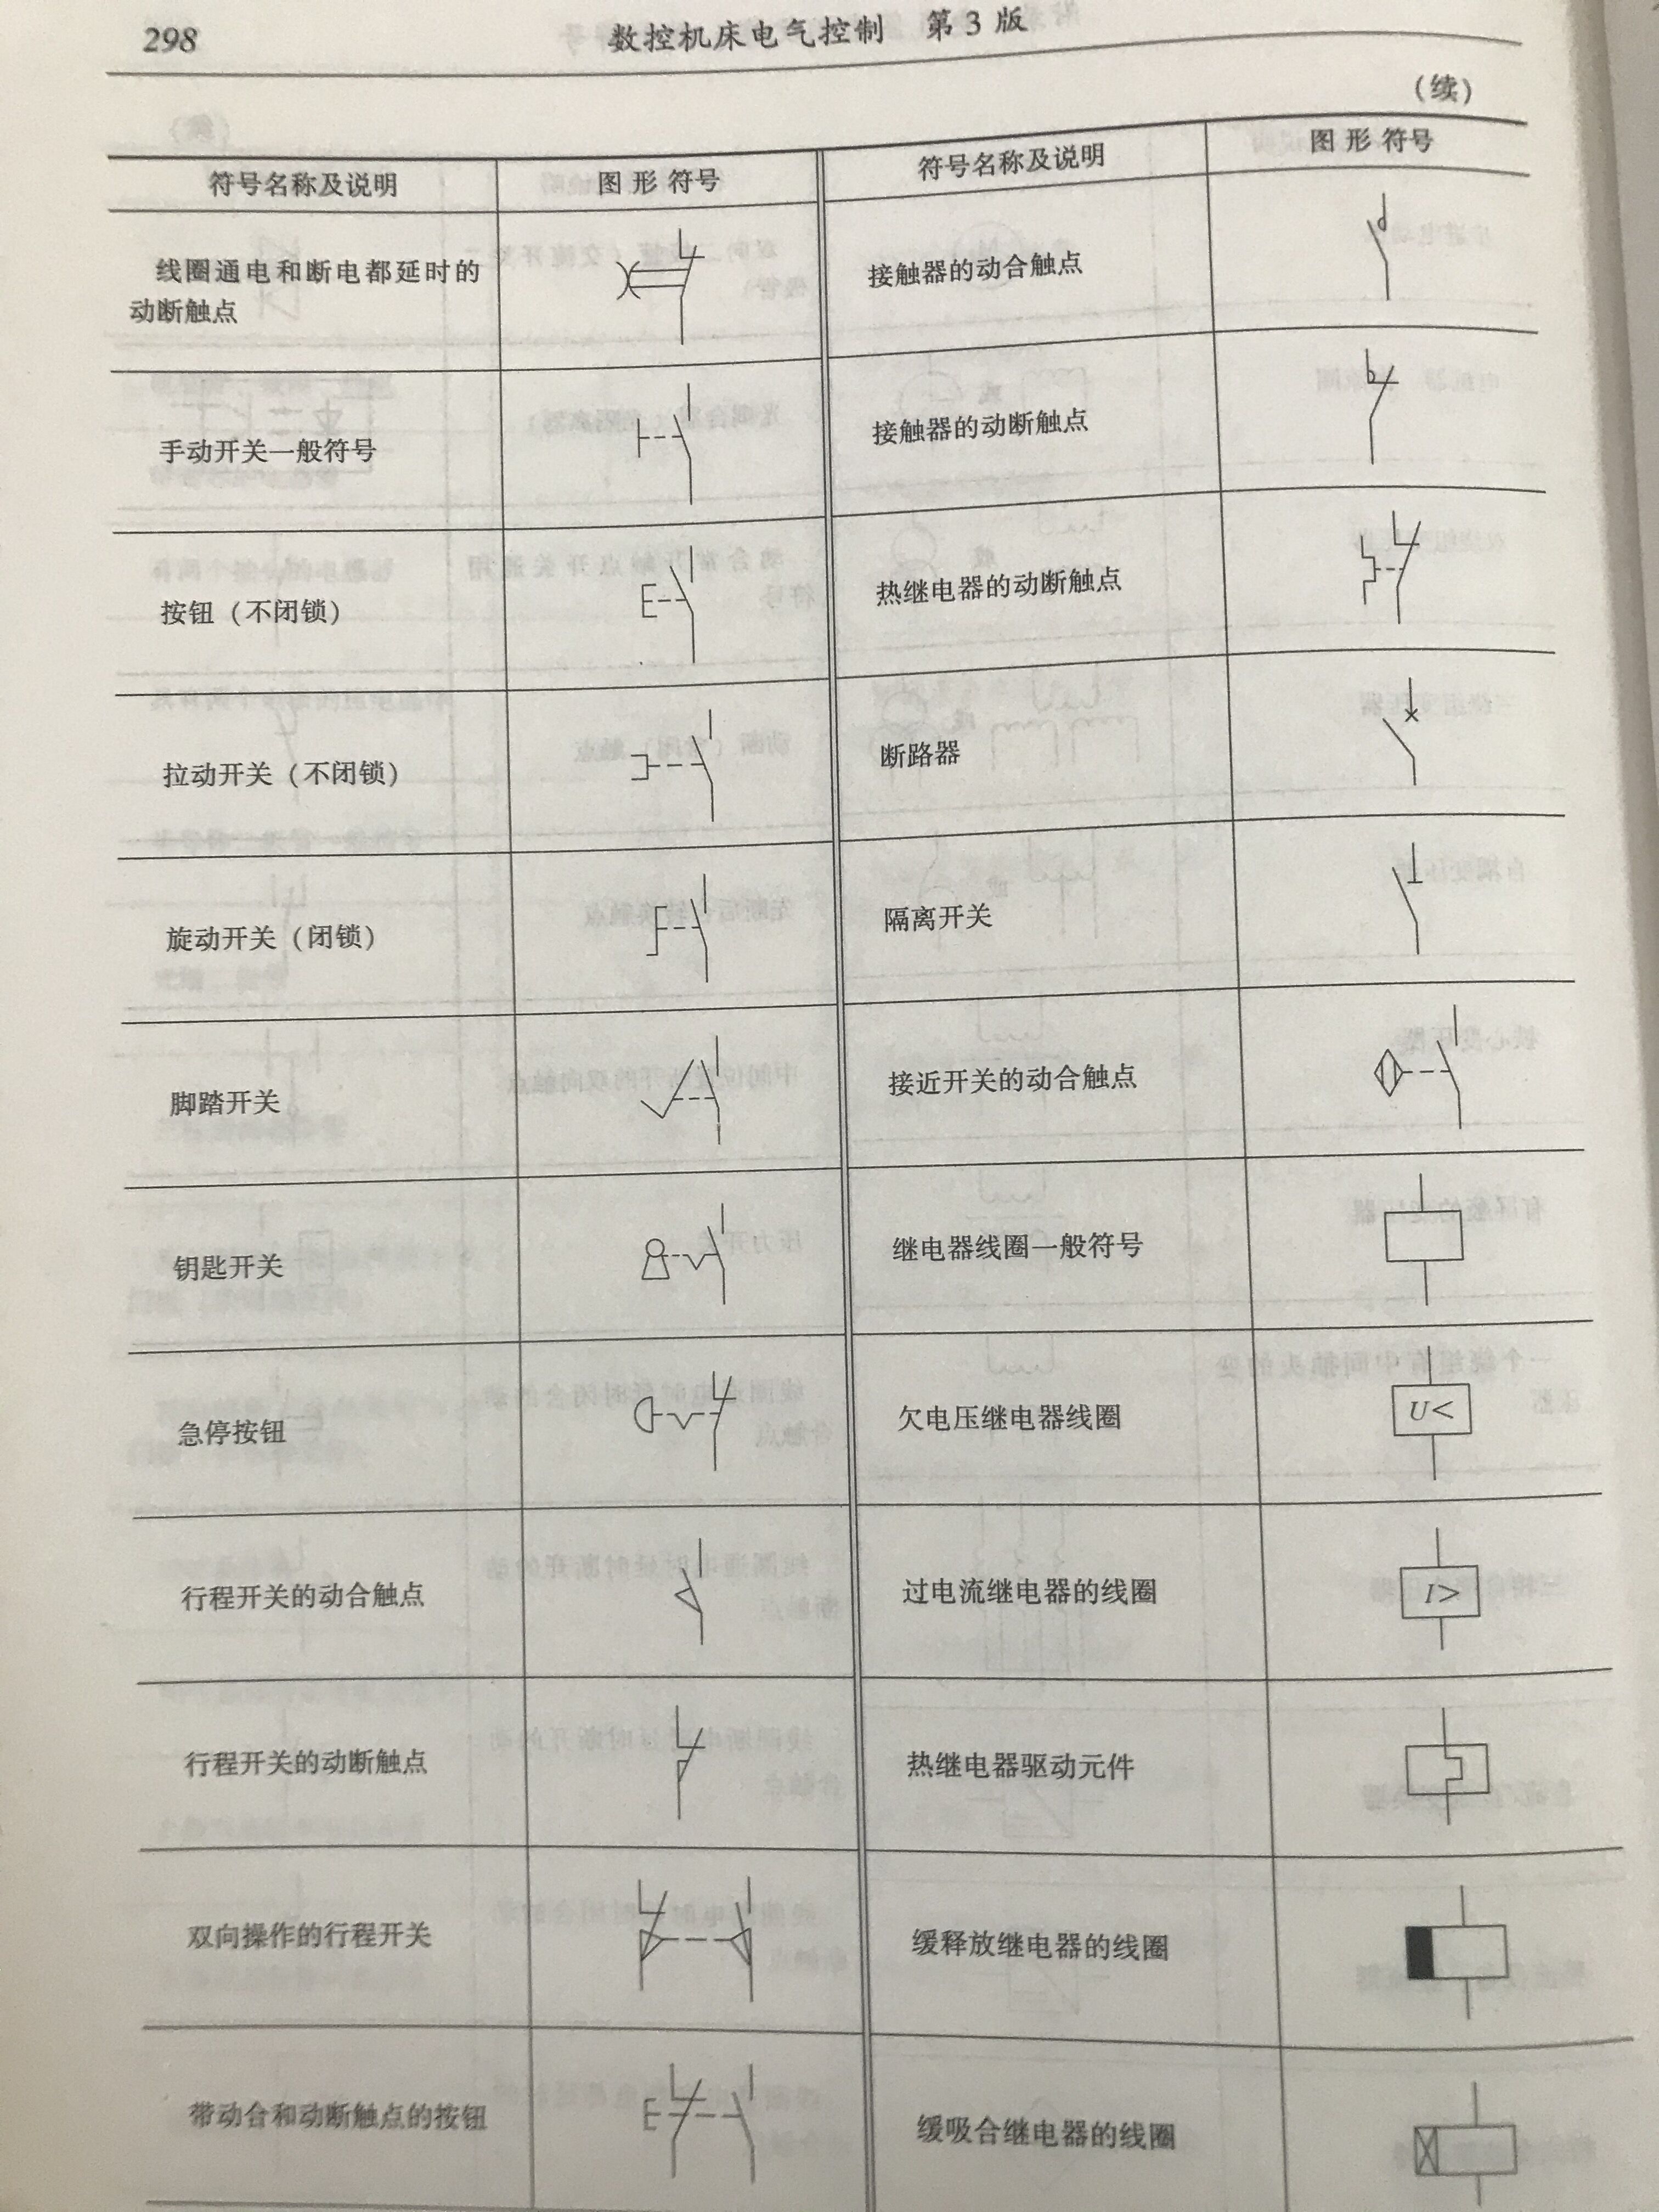 298
数控机床电气控制 第3版
(续)
符号名称及说明
图形符号
符号名称及说明
图形符号
线圈通电和断电都延时的
动断触点
接触器的动合触点
手动开关一般符号
接触器的动断触点
按钮(不闭锁)
热继电器的动断触点
拉动开关(不闭锁)
断路器
旋动开关(闭锁)
隔离开关
脚踏开关
接近开关的动合触点
钥匙开关
继电器线圈一般符号
急停按钮
欠电压继电器线圈
U<
行程开关的动合触点
过电流继电器的线圈
I>
行程开关的动断触点
热继电器驱动元件
双向操作的行程开关
缓释放继电器的线圈
带动合和动断触点的按钮
缓吸合继电器的线圈